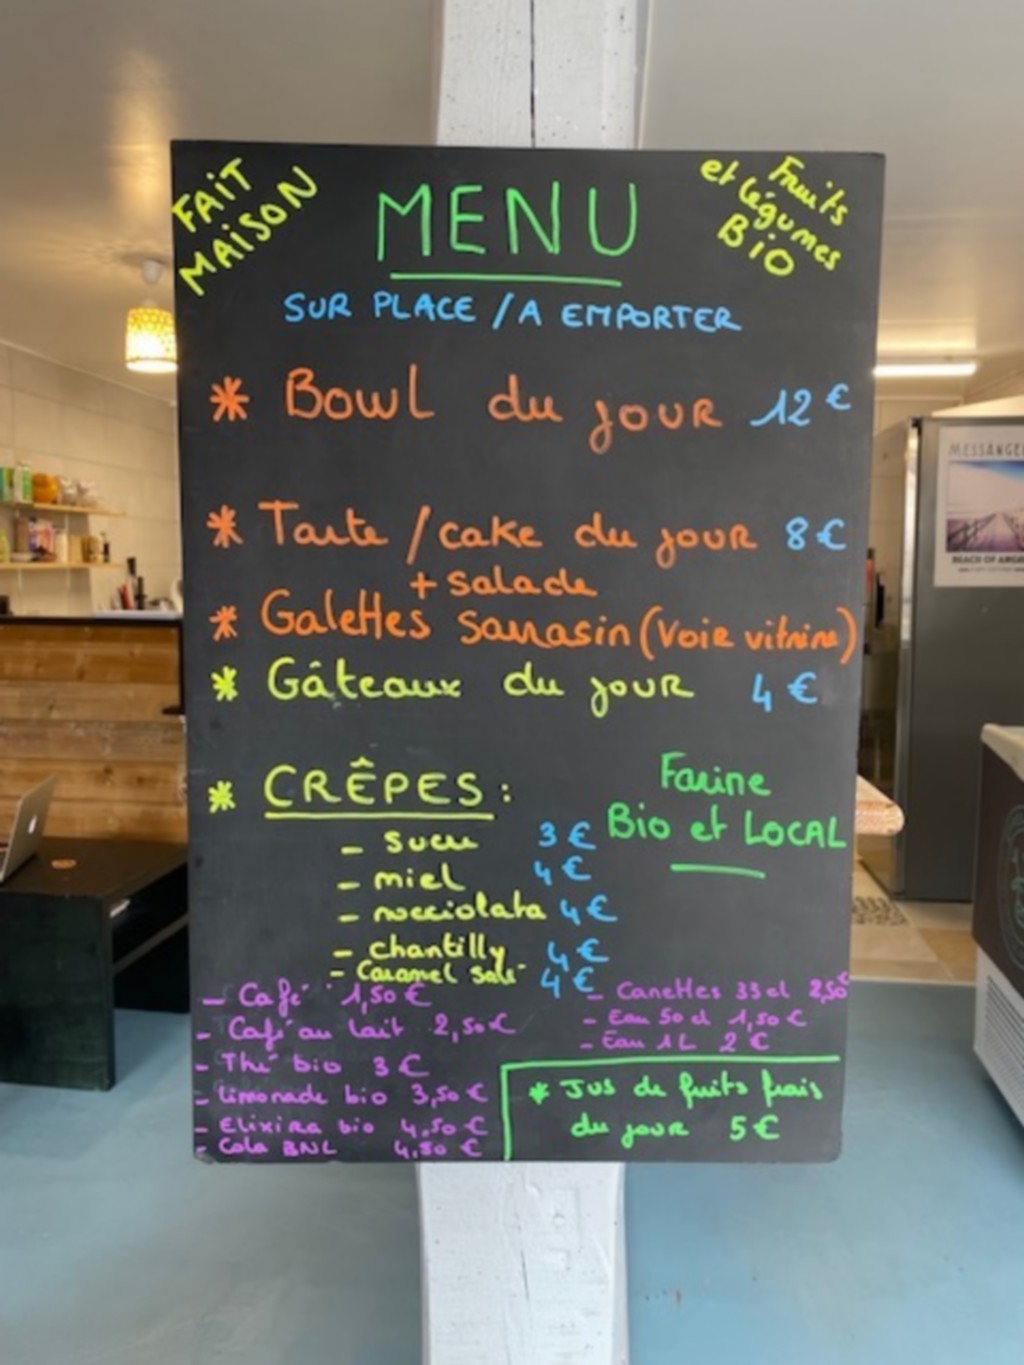 FAIT
MAISON
MENU
Fruits
et légumes
BIO
SUR PLACE / A EMPORTER
* Bowl du jour 12 €
* Tarte / cake du jour 8 €
+ salade
* Galettes sarrasin (voie vitrine)
* Gâteaux du jour 4 €
* CRÊPES :
Farine
Bio et LOCAL
- Sucre 3 €
- miel 4 €
- nocciolata 4 €
- chantilly 4 €
- Caramel salé 4 €
- Café 1,50 €
- Café au lait 2,50 €
- Thé bio 3 €
- limonade bio 3,50 €
- Elixira bio 4,50 €
- Cola BNL 4,50 €
- Canettes 33 cl 2,50 €
- Eau 50 cl 1,50 €
- Eau 1L 2 €
* Jus de fruits frais
du jour 5 €
MESSANGE